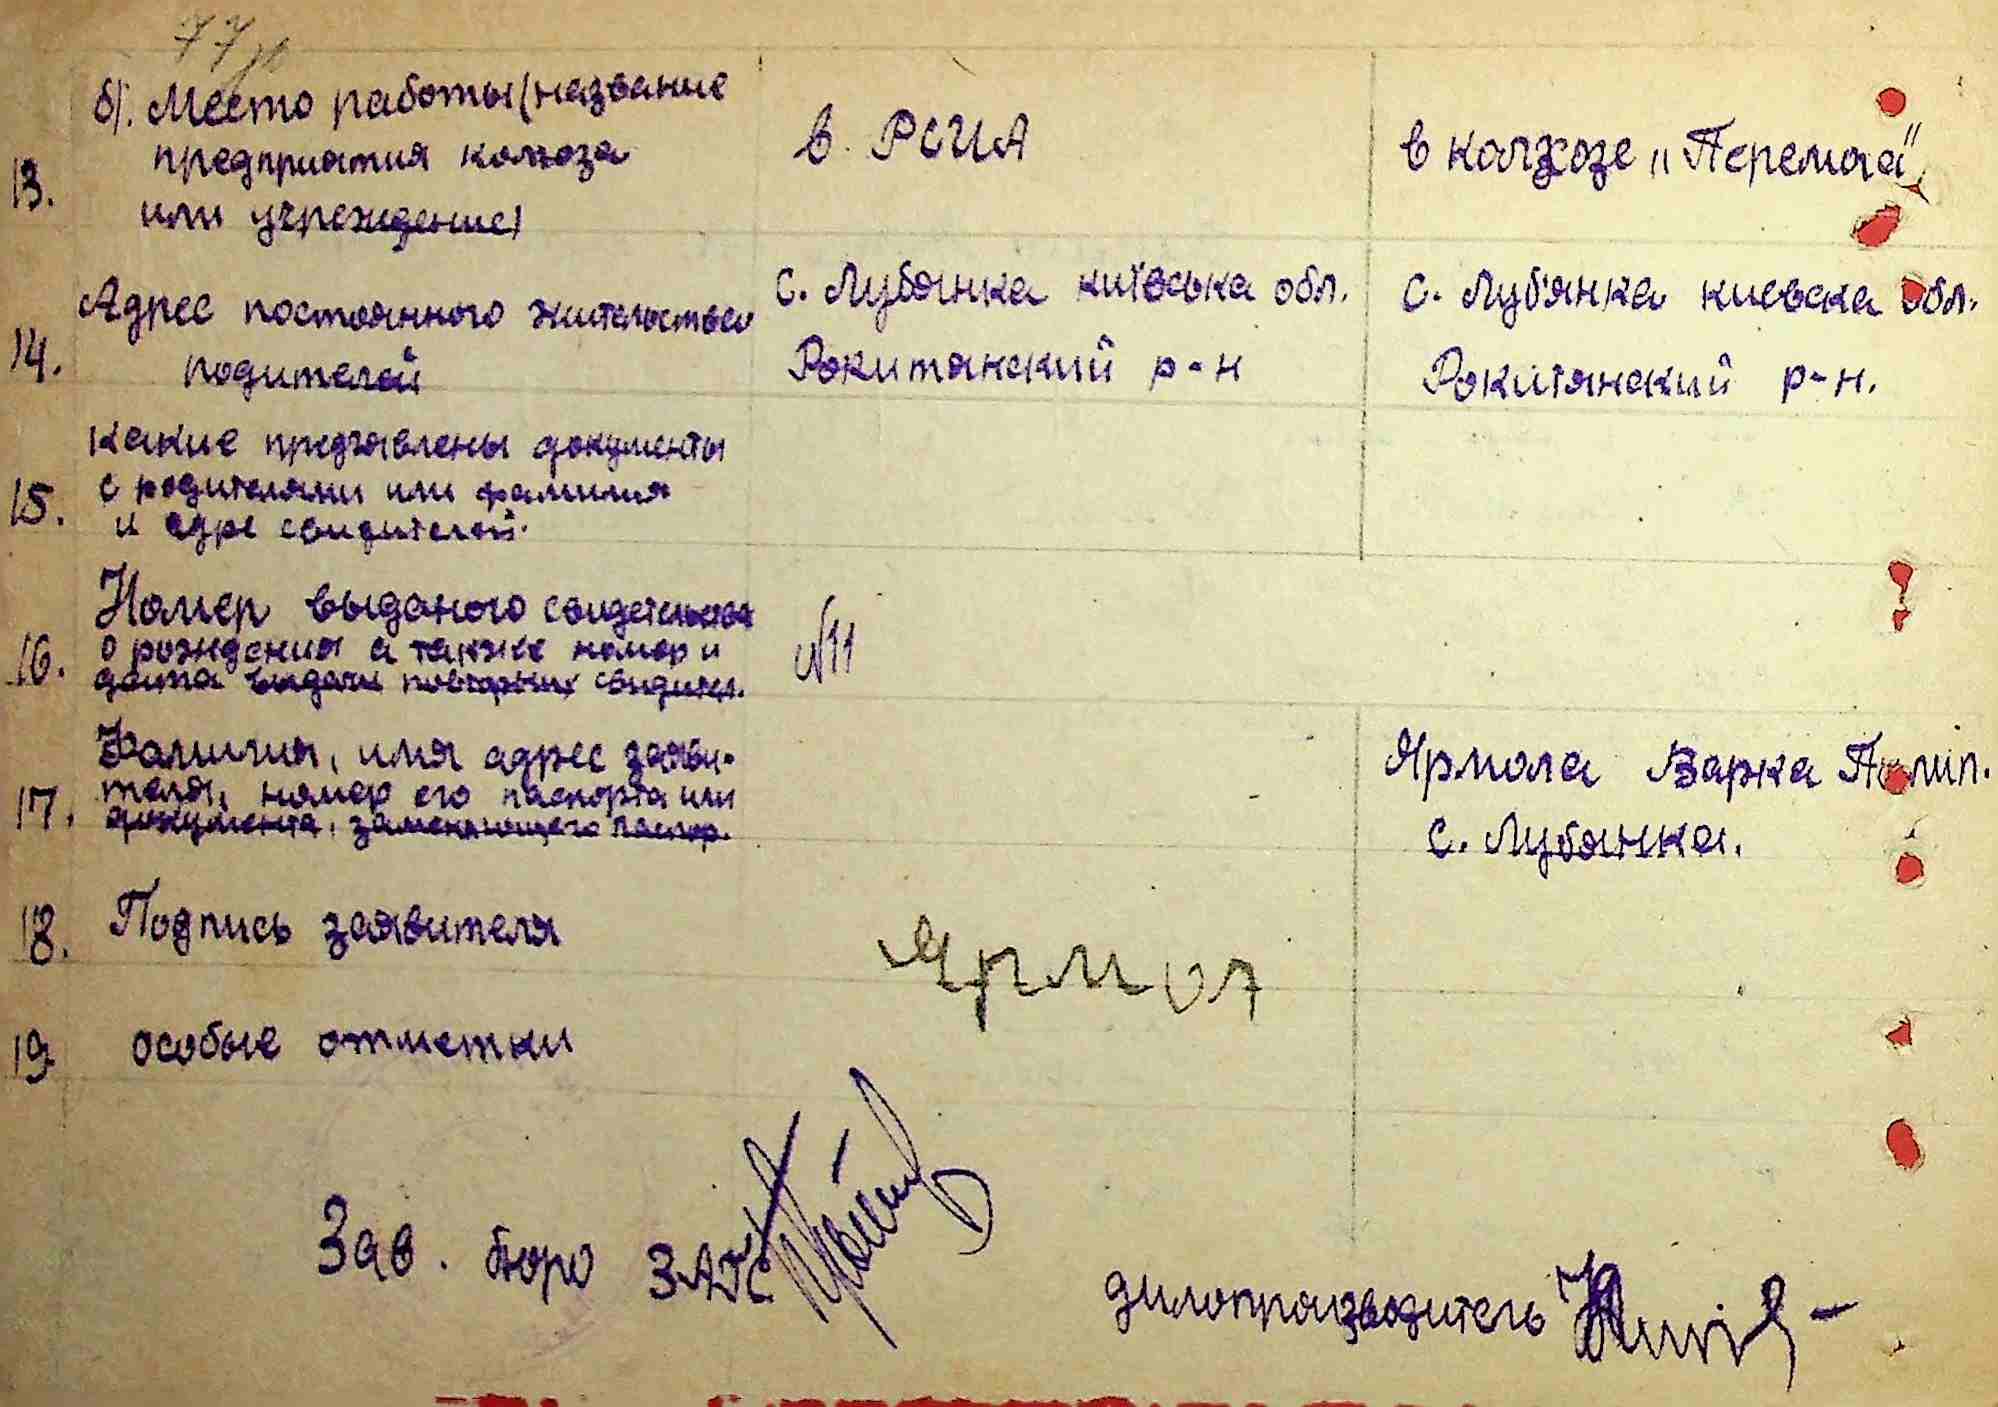 77
б). Место работы (название
предприятия колхоза
13.
или учреждение)
в РСИА
в колхозе „Перемога"
Адрес постоянного жительства
14.
родителей
с. Лубянка київська обл.
Рокитянский р-н
с. Лубянка киевска обл.
Рокитянский р-н.
какие предъявлены документы
15.
с родителями или фамилия
и адре свидителей.
Номер выданого свидетельства
16.
о рождения а также номер и
дата выдачи повторных свидител.
№11
Фамилия, имя адрес заяви-
17.
теля, номер его паспорта или
документа, заменяющего паспор.
Ярмола Варка Пилип.
с. Лубянка.
18. Подпись заявителя
Ярмол
19. особые отметки
Зав. бюро ЗАГС
дилопроизводитель